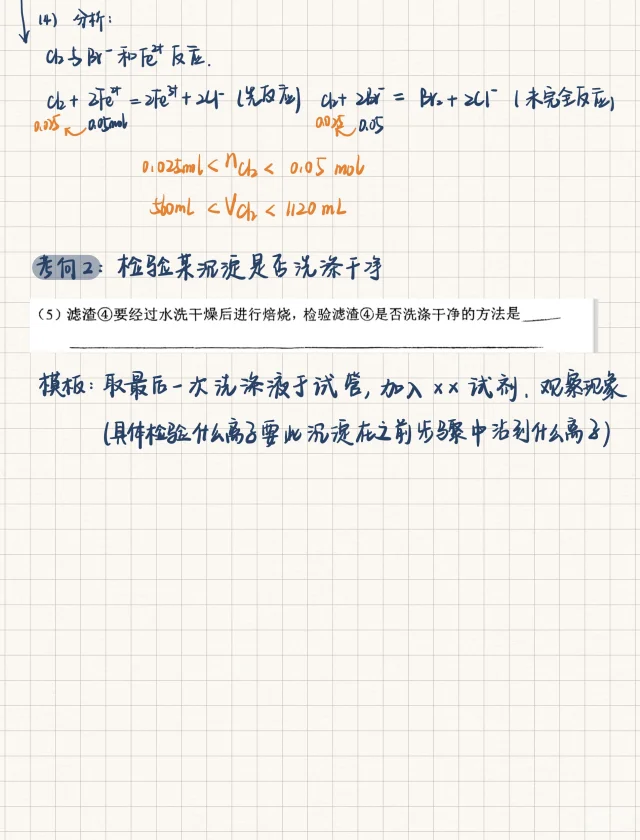 (4) 分析:
Cl₂与Br⁻和Fe²⁺反应.
Cl₂ + 2Fe²⁺ = 2Fe³⁺ + 2Cl⁻ (先反应) Cl₂ + 2Br⁻ = Br₂ + 2Cl⁻ (未完全反应)
0.025 0.05mol 0.025 0.05
0.025mol < nCl₂ < 0.05 mol
560mL < VCl₂ < 1120 mL
考向2: 检验某沉淀是否洗涤干净
(5) 滤渣④要经过水洗干燥后进行焙烧，检验滤渣④是否洗涤干净的方法是
模板: 取最后一次洗涤液于试管, 加入××试剂. 观察现象
(具体检验什么离子要此沉淀在之前步骤中沾到什么离子)